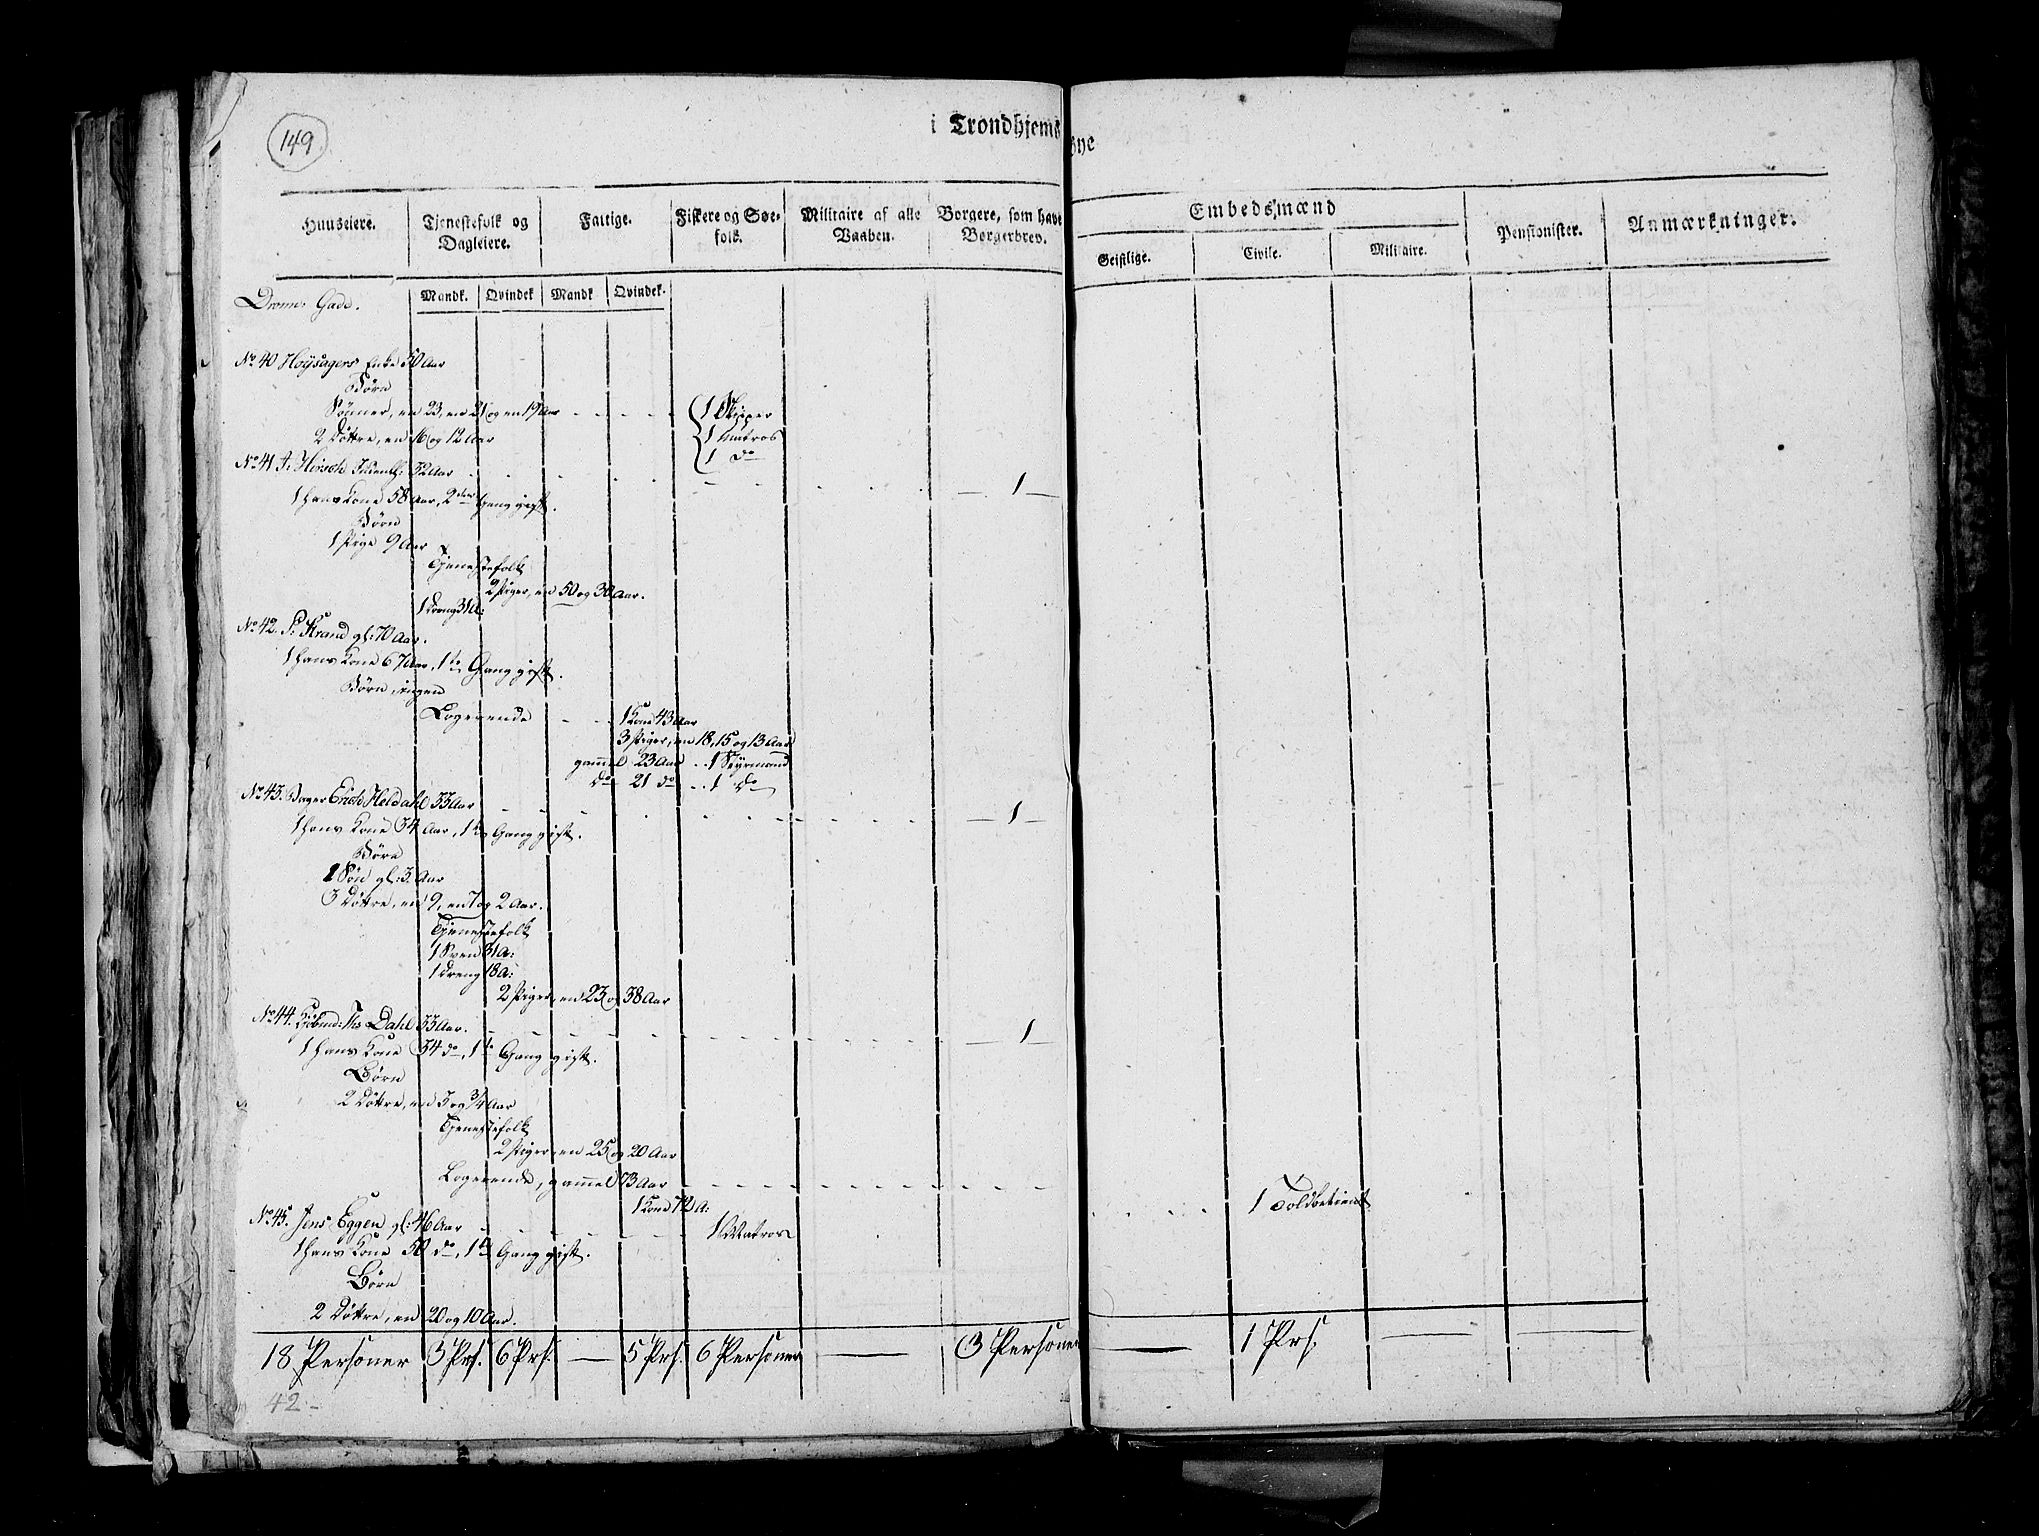 149
i Trondhjems Bye
Huuseiere.
Tjenestefolk og Dagleiere.
Fattige.
Fiskere og Søefolk.
Militaire af alle Vaaben.
Borgere, som have Borgerbrev.
Embedsmænd
Geistlige.
Civile.
Militaire.
Pensionister.
Anmærkninger.
Mandk. Qvindek Mandk Qvindek.
Dronn: Gade.
No 40 Hoysagers Enke 50 Aar
Børn
Sønner, en 23, en 21 og en 19 Aar - - - - - 1 Skipper
1 Matros
2 Døttre, en 16 og 12 Aar
1 do
No 41 J: Hirsch 52 Aar - - - - 1
1 hans Kone 58 Aar, 2den Gang gift.
Børn
1 Pige 9 Aar
Tjenestefolk
2 Piger, en 50 og 30 Aar.
1 Dreng 31 A:
No 42. P: Strand gl: 70 Aar.
1 hans Kone 67 Aar, 1te Gang gift.
Børn ingen
Logerende - - - 1 Kone 43 Aar
3 Piger, en 18, 15 og 13 Aar
gammel 23 Aar .. 1 Styrmand
do 21 do .. 1 do
No 43. Bager Erich Heldahl 33 Aar - - - - 1
1 hans Kone 34 Aar, 1te Gang gift.
Børn
1 Søn gl: 3 Aar
3 Døttre, en 9, en 7 og 2 Aar.
Tjenestefolk
1 Svend 31 A:
1 Dreng 18 A:
2 Piger, en 23 og 38 Aar
No 44. Kiøbmd: Ths Dahl 33 Aar. - - - - 1
1 hans Kone 34 do, 1te Gang gift.
Børn
2 Døttre, en 5 og 3/4 Aar
Tjenestefolk
2 Piger, en 25 og 20 Aar
Logerende, gammel 73 Aar - - - - 1 Toldbetient
1 Kone 72 A:
No 45. Jens Eggen gl: 46 Aar - - - - 1 Matros
1 hans Kone 50 do, 1te Gang gift.
Børn
2 Døttre, en 20 og 10 Aar.
18 Personer 3 Prs. 6 Prs. — 5 Prs. 6 Personer — 3 Personer — 1 Prs. — —
42-